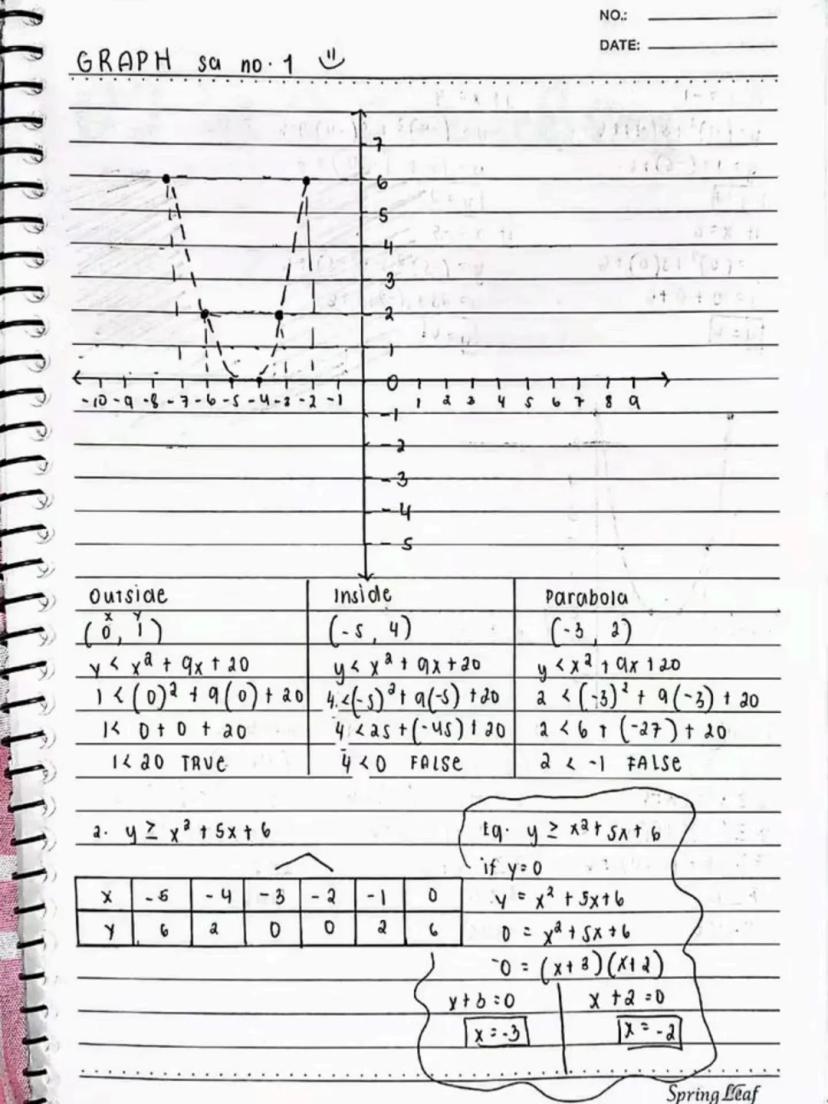 NO.:
DATE:
GRAPH sa no. 1
7
6
5
4
3
2
1
0
-10 -9 -8 -7 -6 -5 -4 -3 -2 -1 1 2 3 4 5 6 7 8 9
-1
-2
-3
-4
-5
Outside Inside Parabola
x y
(0, 1) (-5, 4) (-3, 2)
y < x² + 9x + 20 y < x² + 9x + 20 y < x² + 9x + 20
1 < (0)² + 9(0) + 20 4 < (-5)² + 9(-5) + 20 2 < (-3)² + 9(-3) + 20
1 < 0 + 0 + 20 4 < 25 + (-45) + 20 2 < 6 + (-27) + 20
1 < 20 TRUE 4 < 0 FALSE 2 < -1 FALSE
2. y ≥ x² + 5x + 6 Eq. y ≥ x² + 5x + 6
if y=0
x -5 -4 -3 -2 -1 0 y = x² + 5x + 6
y 6 2 0 0 2 6 0 = x² + 5x + 6
0 = (x+3)(x+2)
x+3=0 x+2=0
x=-3 x=-2
Spring Leaf